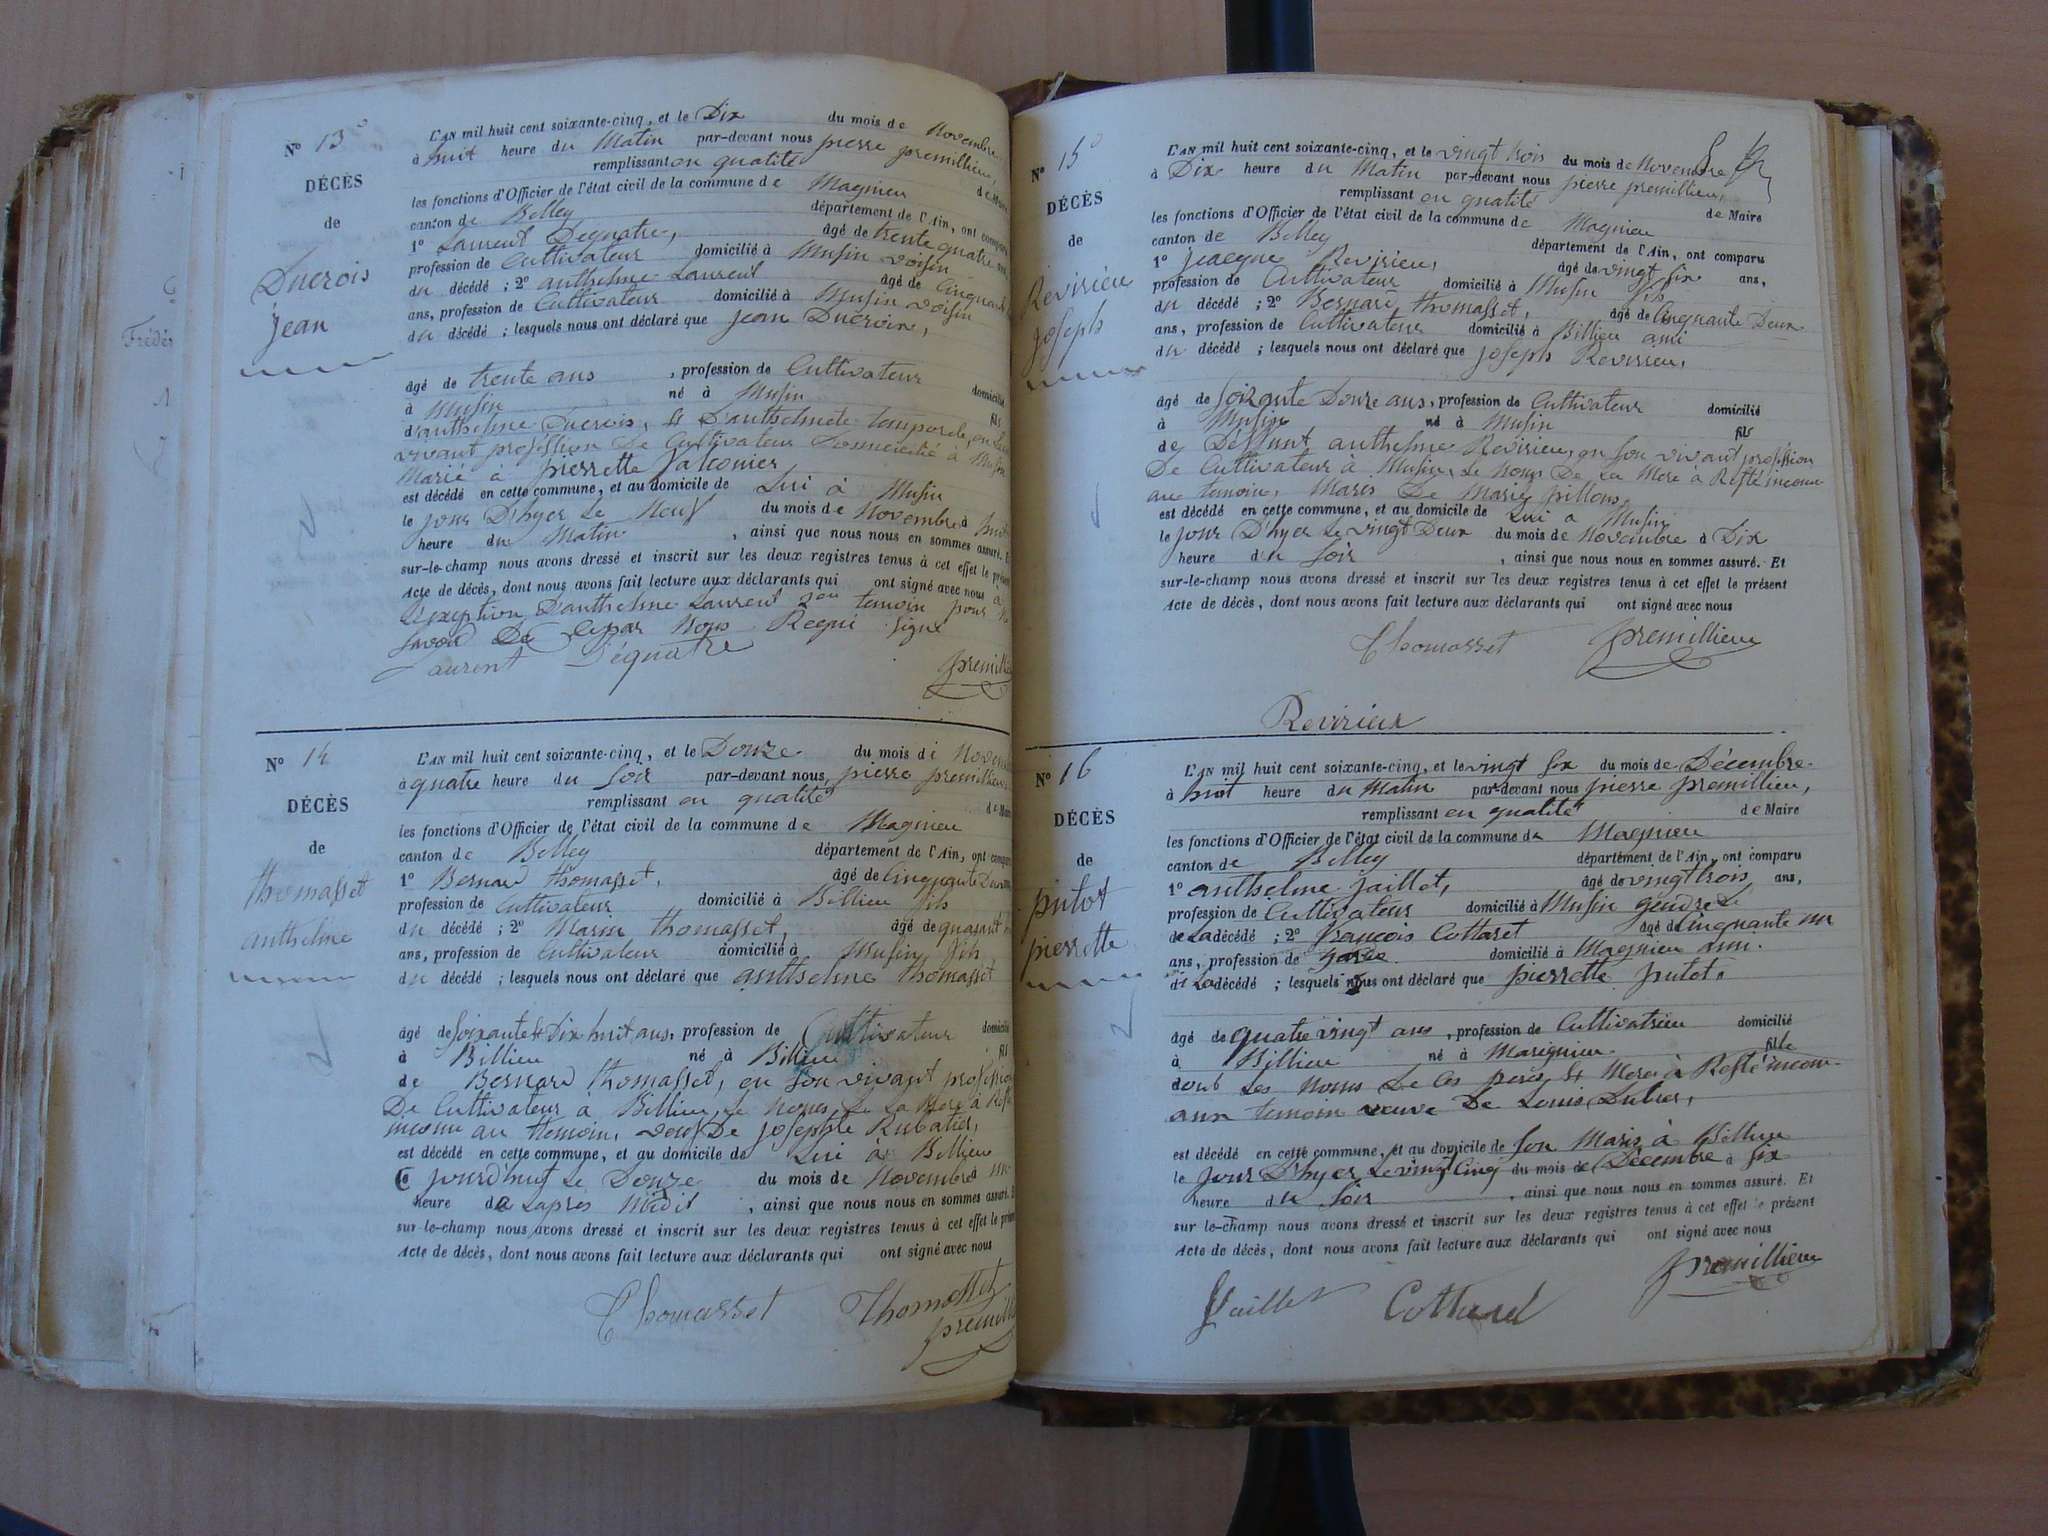 Frédér
N° 13°
DÉCÈS
de
Ducrois
jean
L'AN mil huit cent soixante-cinq, et le Dix du mois de Novembre
à huit heure du Matin par-devant nous pierre premillieu,
remplissant en qualité de Maire
les fonctions d'Officier de l'état civil de la commune de Magnieu
canton de Belley département de l'Ain, ont comparu
1° Laurent Dequatre, âgé de trente quatre ans
profession de Cultivateur domicilié à Musin voisin
du décédé ; 2° anthelme Laurent âgé de Cinquante
ans, profession de Cultivateur domicilié à Musin voisin
du décédé ; lesquels nous ont déclaré que jean Ducroix,
âgé de trente ans , profession de Cultivateur domicilié
à Musin né à Musin fils
d'anthelme Ducrois, et D'anthelmete temporele, en
vivant profession De Cultivateur Domicilié à Musin
Marié à pierrette falconier
est décédé en cette commune, et au domicile de Lui à Musin
le jour D'hyer Le Neuf du mois de Novembre à huit
heure du Matin , ainsi que nous nous en sommes assuré. Et
sur-le-champ nous avons dressé et inscrit sur les deux registres tenus à cet effet le présent
Acte de décès, dont nous avons fait lecture aux déclarants qui ont signé avec nous a
L'exeption D'anthelme Laurent 2em temoin pour Ne
savoir De Cepar Nous Requi signé
Laurent Déquatre premillieu
N° 14
DÉCÈS
de
thomasset
anthelme
L'AN mil huit cent soixante-cinq, et le Douze du mois de Novembre
à quatre heure du soir par-devant nous pierre premillieu
remplissant en qualité de Maire
les fonctions d'Officier de l'état civil de la commune de Magnieu
canton de Belley département de l'Ain, ont comparu
1° Bernard thomasset, âgé de Cinquante Deux
profession de Cultivateur domicilié à Billieu fils
du décédé ; 2° Marin thomasset, âgé de quarant
ans, profession de Cultivateur domicilié à Musin fils
du décédé ; lesquels nous ont déclaré que anthelme thomasset
âgé de soixante Dix huit ans, profession de Cultivateur domicilié
à Billieu né à Billieu fils
de Bernard thomasset, en son vivant profession
De Cultivateur à Billieu, Le Noms De La Mere à Resté
inconu au temoin, veuf De josephte Rubatid,
est décédé en cette commune, et au domicile de Lui à Billieu
le jourd'huit Le Douze du mois de Novembre à une
heure de Lapres Midit , ainsi que nous nous en sommes assuré. Et
sur-le-champ nous avons dressé et inscrit sur les deux registres tenus à cet effet le présent
Acte de décès, dont nous avons fait lecture aux déclarants qui ont signé avec nous
Thomasset Thomasset
premillieu
N° 15°
DÉCÈS
de
Revirieu
joseph
L'AN mil huit cent soixante-cinq, et le vingt trois du mois de Novembre
à Dix heure du Matin par-devant nous pierre premillieu,
remplissant en qualité de Maire
les fonctions d'Officier de l'état civil de la commune de Magnieu
canton de Belley département de l'Ain, ont comparu
1° jeacque Revirieu, âgé de vingt six ans,
profession de Cultivateur domicilié à Musin fils
du décédé ; 2° Bernard thomasset, âgé de Cinquante Deux
ans, profession de Cultivateur domicilié à Billieu ami
du décédé ; lesquels nous ont déclaré que joseph Revirieu,
âgé de soizante Douze ans, profession de Cultivateur domicilié
à Musin né à Musin fils
de Déffunt anthelme Revirieu, en son vivant profession
De Cultivateur à Musin, Le Noms De La Mere à Resté inconu
au temoin, Maris De Marie pillons
est décédé en cette commune, et au domicile de Lui à Musin
le jour D'hyer Le vingt Deux du mois de Novembre à Dix
heure du soir , ainsi que nous nous en sommes assuré. Et
sur-le-champ nous avons dressé et inscrit sur les deux registres tenus à cet effet le présent
Acte de décès, dont nous avons fait lecture aux déclarants qui ont signé avec nous
Thomasset premillieu
Revirieux
N° 16
DÉCÈS
de
putot
pierrette
L'AN mil huit cent soixante-cinq, et le vingt six du mois de Décembre
à huit heure du Matin par-devant nous pierre premillieu,
remplissant en qualité de Maire
les fonctions d'Officier de l'état civil de la commune de Magnieu
canton de Belley département de l'Ain, ont comparu
1° anthelme jaillet, âgé de vingt trois ans,
profession de Cultivateur domicilié à Musin gendre
de La décédé ; 2° François Cottaret âgé de Cinquante un
ans, profession de garde domicilié à Magnieu ami
de La décédé ; lesquels nous ont déclaré que pierrette putot.
âgé de quatre vingt ans , profession de Cultivatrieu domicilié
à Billieu né à Marignieu fille
dont Les Noms De Ces peres et Meres à Resté incon-
aux temoin veuve De Louis Dubier,
est décédé en cette commune, et au domicile de son Maris à Billieu
le jour D'hyer Le vingt Cinq du mois de Décembre à six
heure du soir , ainsi que nous nous en sommes assuré. Et
sur-le-champ nous avons dressé et inscrit sur les deux registres tenus à cet effet le présent
Acte de décès, dont nous avons fait lecture aux déclarants qui ont signé avec nous
Jaillet Cottaret premillieu